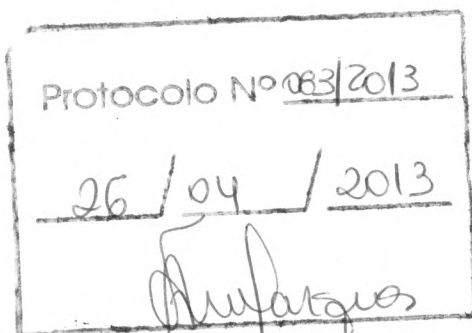 Protocolo Nº 083/2013
26 / 04 / 2013